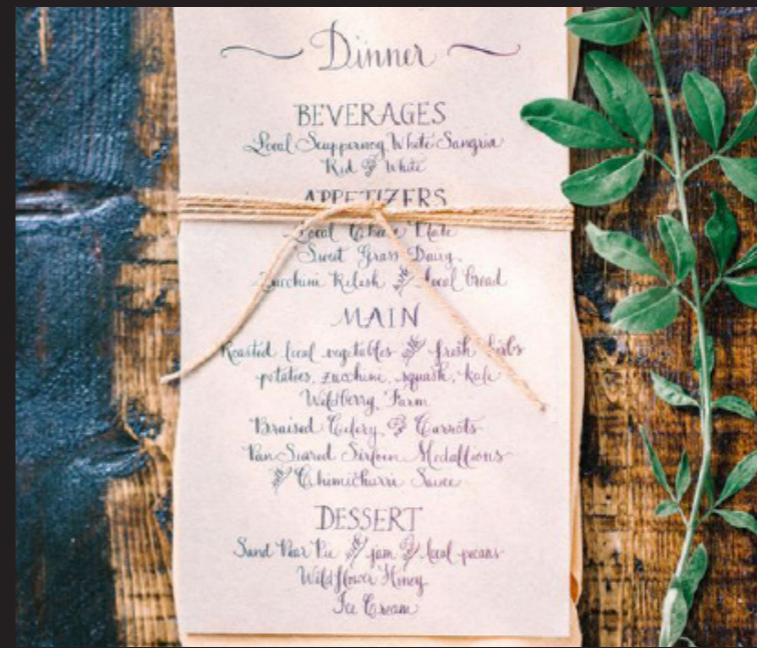 Dinner
BEVERAGES
Local Scuppernog White Sangria
Red & White
APPETIZERS
Local Cheese Plate
Sweet Grass Dairy
Zucchini Relish with local bread
MAIN
Roasted local vegetables with fresh herbs
potatoes, zucchini, squash, kale
Wildberry Farm
Braised Celery & Carrots
Pan Seared Sirloin Medallions
with Chimicharri Sauce
DESSERT
Sand Pear Pie with jam & local pecans
Wildflower Honey
Ice Cream